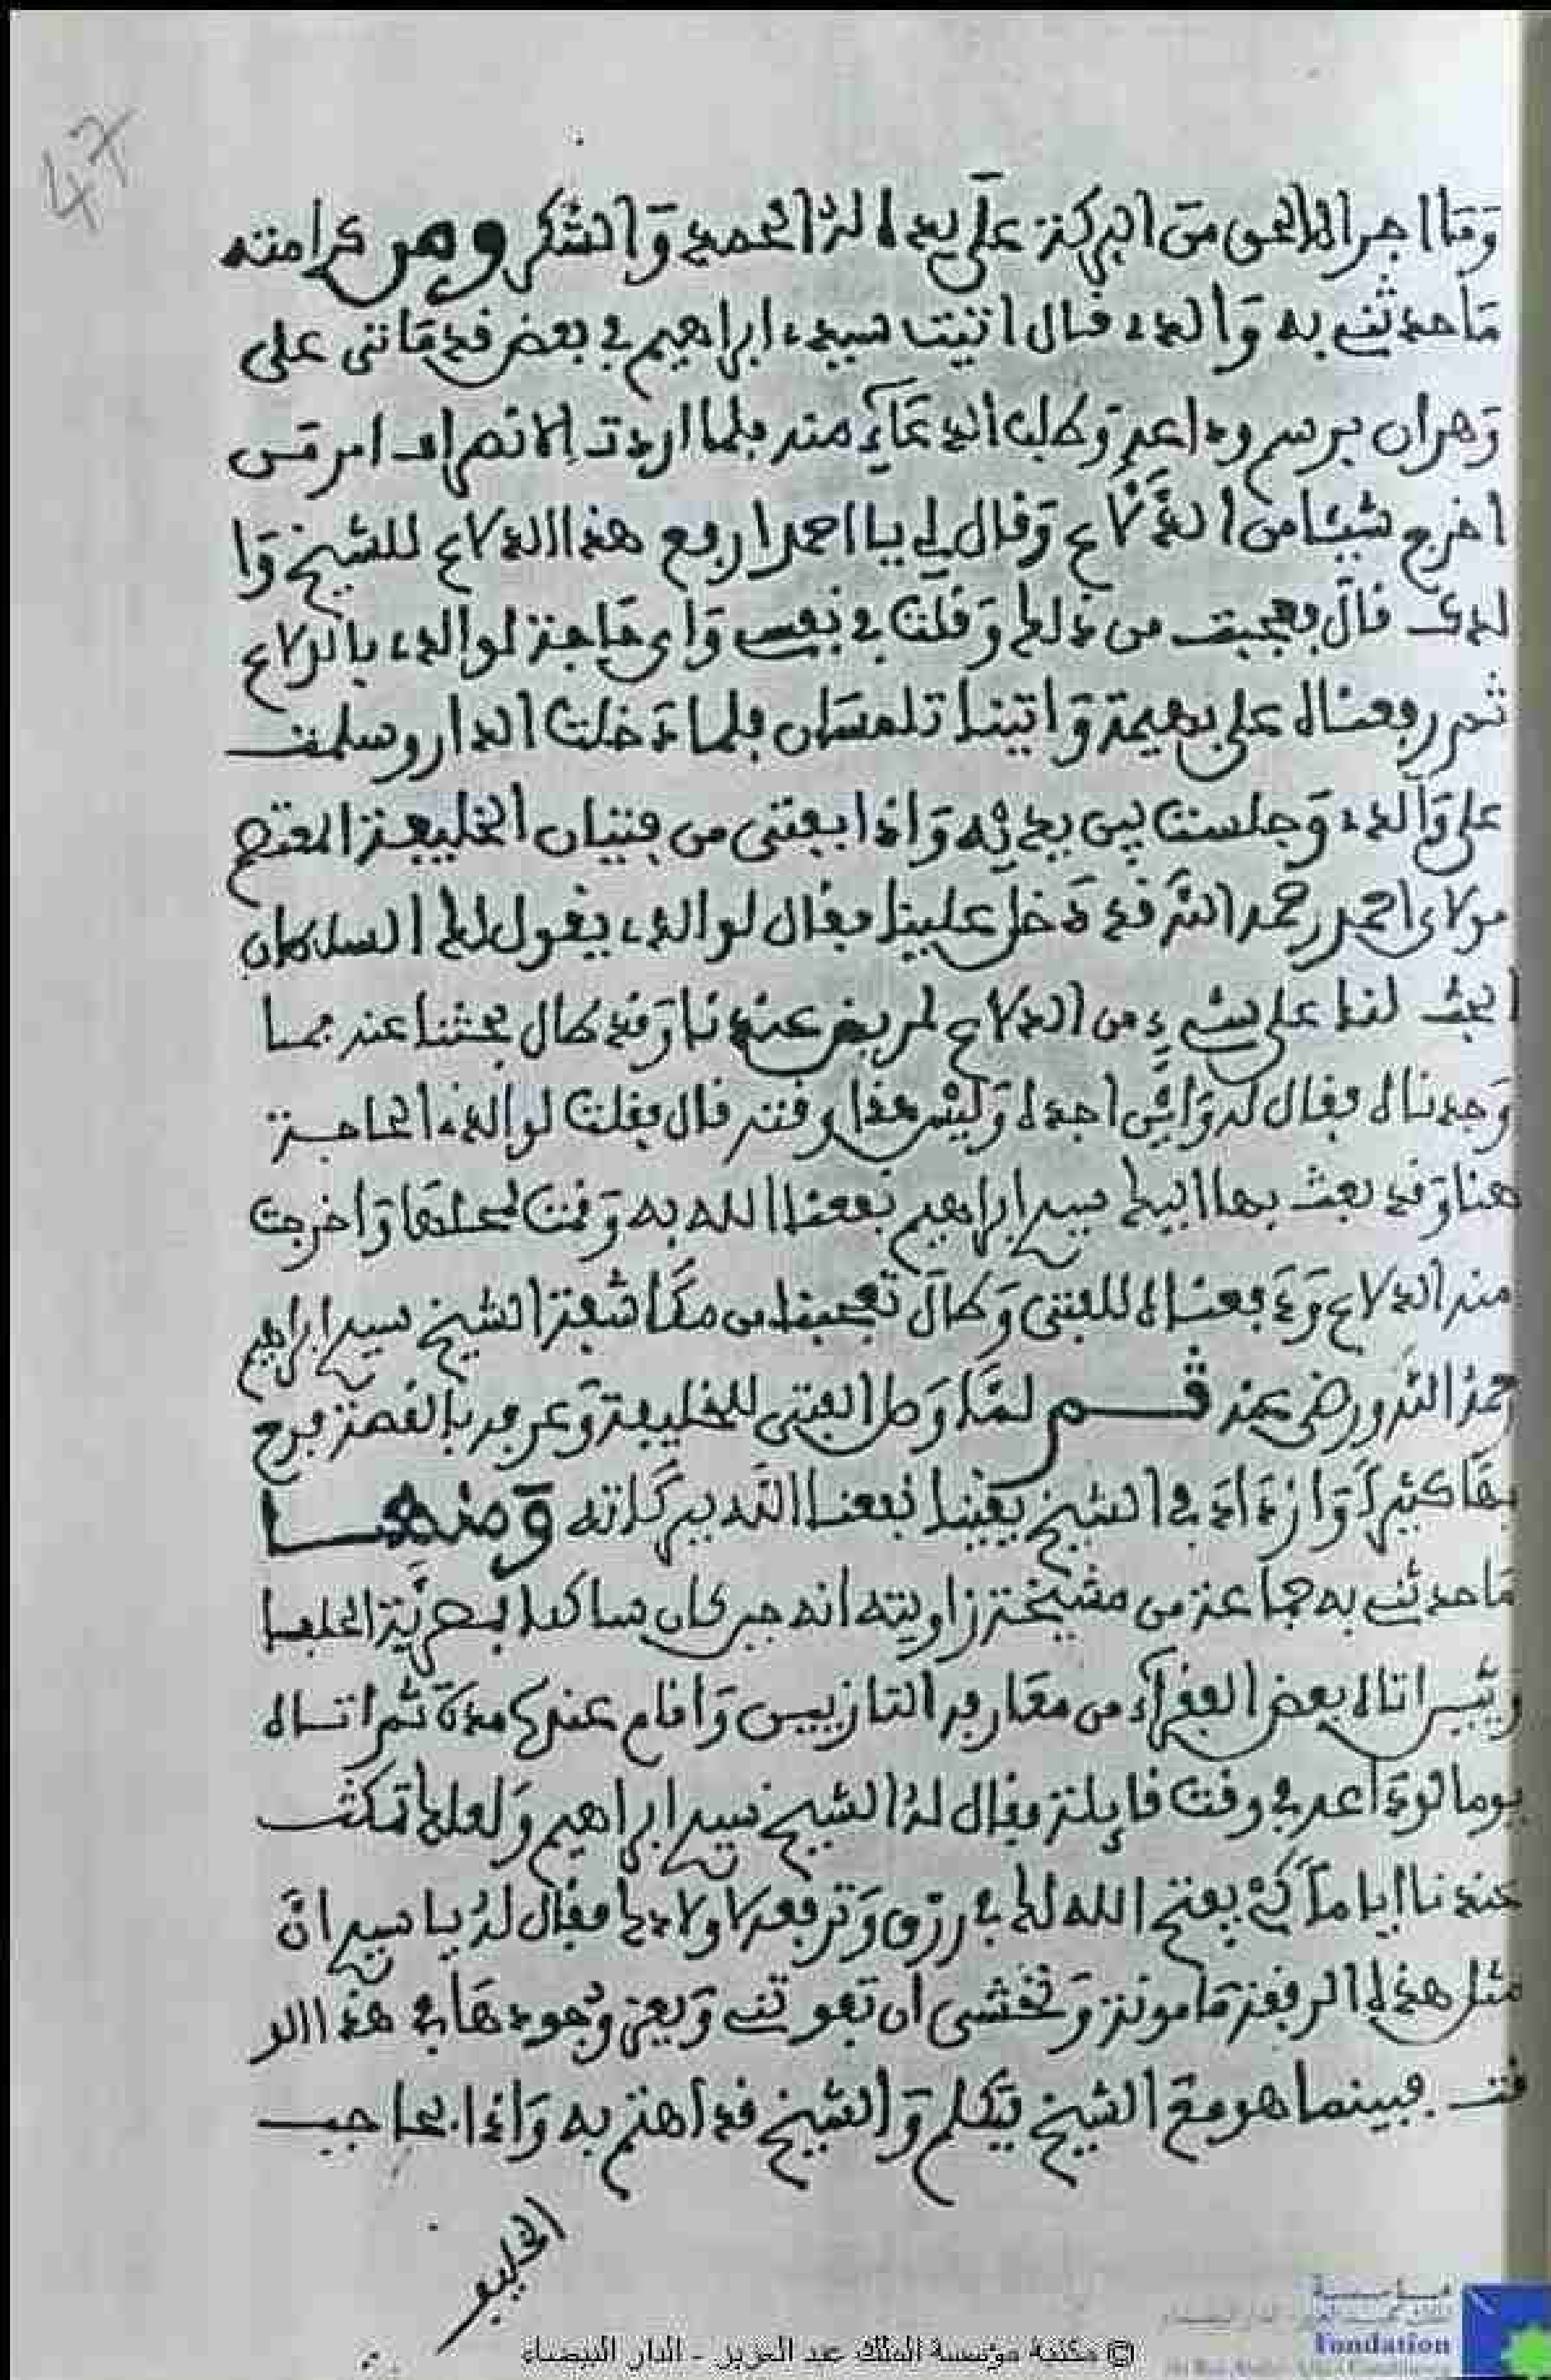 47
وما اجراه الحق من البركة على يده له الحمد والشكر ومن كرامته
ما حدثني به والدي قال اتيت سيدي ابراهيم في بعض قدماتي على
وهران برسم وداعه وطلب الدعاء منه فلما اردت الانصراف امر من
اخرج شيئا من الدلاع وقال لي يا احمد ارفع هذا الدلاع للشيخ وا
لدك قال فعجبت من ذلك وقلت في نفسي واي حاجة لوالدي بالدلاع
ثم رفعناه على بهيمة واتينا تلمسان فلما دخلت الدار وسلمت
على والدي وجلست بين يديه واذا بفتى من فتيان الخليفة المعتصم
مولاي احمد رحمه الله قد دخل علينا فقال لوالدي يقول لك السلطان
ابحث لنا على شيء من الدلاع لمريض عندنا وقد طال بحثنا عنه فما
وجدناه فقال له واين اجده وليس هذا وقته قال فقلت لوالدي الحاجة
هنا وقد بعث بها اليك سيدي ابراهيم نفعنا الله به وقمت لمحلها واخرجت
منه الدلاع ودفعناه للفتى وطال تعجبنا من مكاشفة الشيخ سيدي ابراهيم
رحمه الله ورضي عنه ثم لما وصل الفتى للخليفة وعرفه بالقصة فرح
بها كثيرا وازداد في الشيخ يقينا نفعنا الله ببركاته ومنها
ما حدثني به جماعة من مشيخة زاويته انه حين كان ساكنا
اتاه بعض الفقراء من معارفه التازيين واقام عندها مدة ثم اتاه
يوما لوداعه في وقت قايلة فقال له الشيخ سيدي ابراهيم ولعلك تمكث
عندنا اياما كي يفتح الله لك في رزق وترفعه لاولادك فقال له يا سيدي ان
مثل هذه الرفقة مامونة ونخشى ان تفوتني ويعز وجودها في هذا الو
قت فبينما هو مع الشيخ يتكلم والشيخ قد اهتم به واذا بحاجب
الخليفة
© مكتبة مؤسسة الملك عبد العزيز - الدار البيضاء
مؤسسة
Fondation